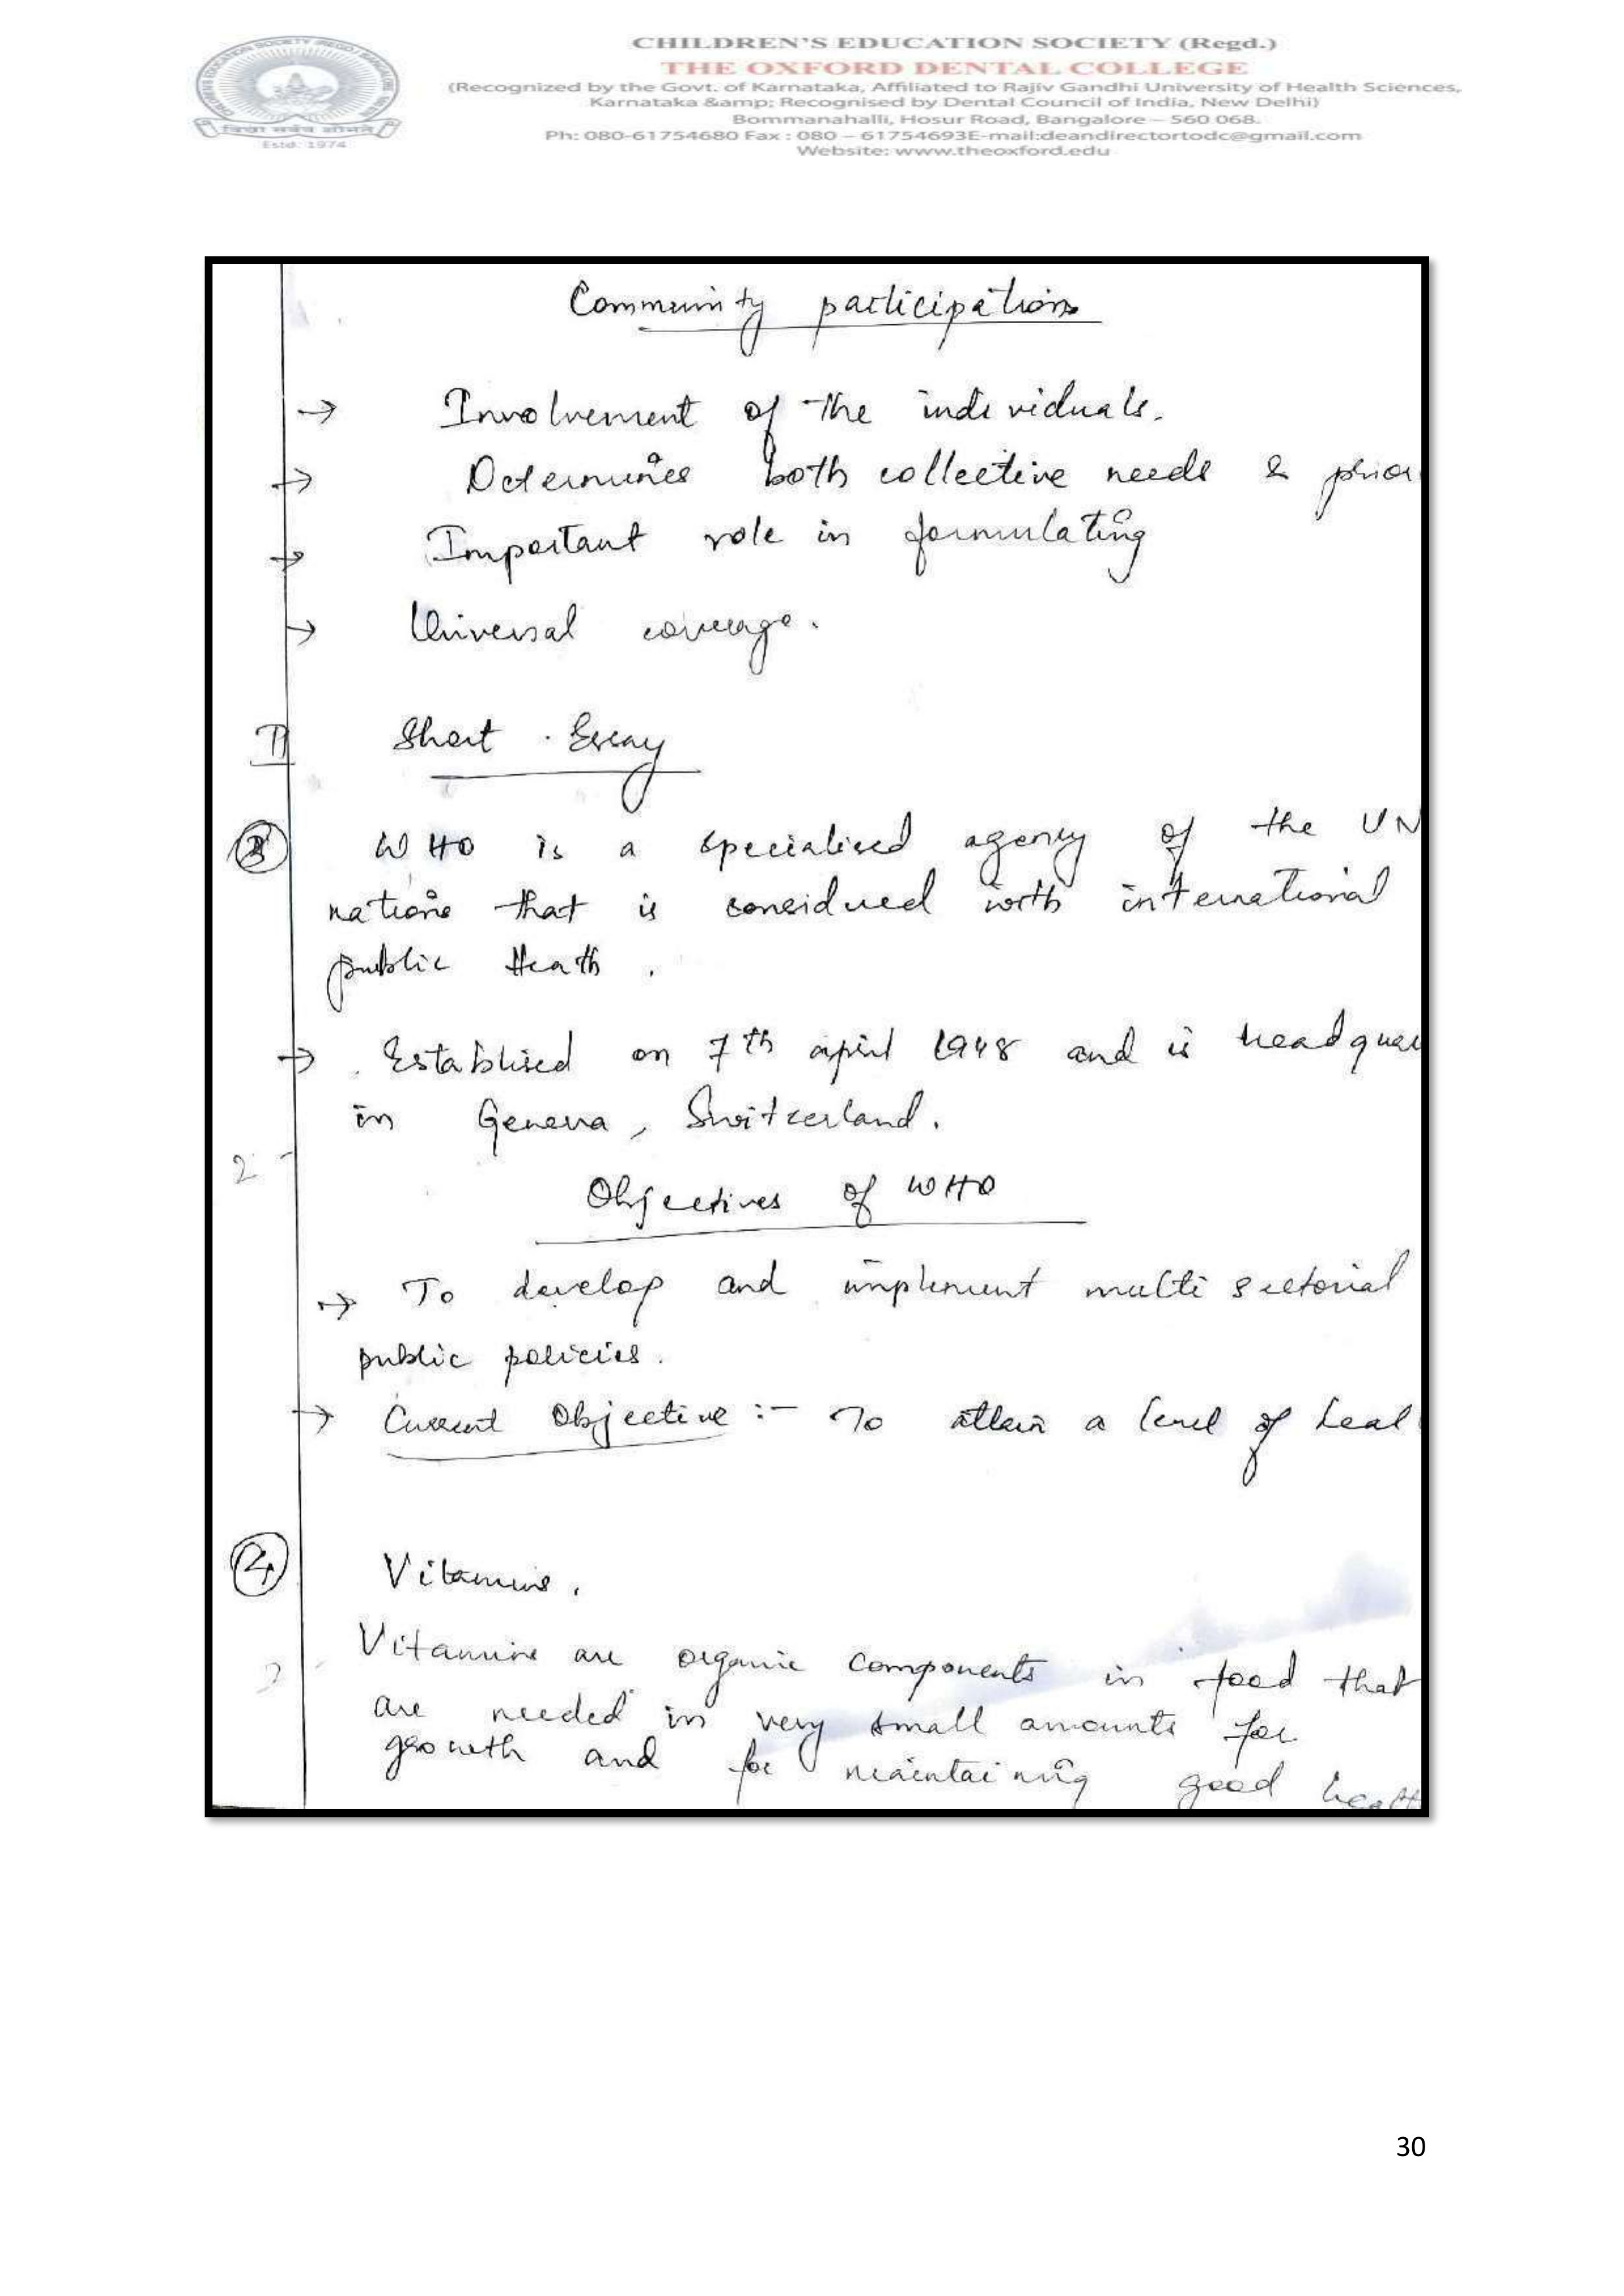 CHILDREN'S EDUCATION SOCIETY (Regd.)
THE OXFORD DENTAL COLLEGE
(Recognized by the Govt. of Karnataka, Affiliated to Rajiv Gandhi University of Health Sciences,
Karnataka &amp; Recognised by Dental Council of India, New Delhi)
Bommanahalli, Hosur Road, Bangalore – 560 068.
Ph: 080-61754680 Fax : 080 – 61754693E-mail:deandirectortodc@gmail.com
Website: www.theoxford.edu
Estd. 1974
Community participation
→ Involvement of the individuals.
→ Determines both collective needs & prior
→ Important role in formulating
→ Universal coverage.
II Short . Essay
3 WHO is a specialised agency of the UN
nations that is considured with international
public Heath .
→ . Establised on 7th april 1948 and is headquar
in Geneva , Switzerland.
2 -
Objectives of WHO
→ To develop and implement multi sectorial
public policies.
→ Current Objective :- To attain a level of heal
4 Vitamins .
Vitamins are organic components in food that
are needed in very small amounts for
growth and for maintaining good healt
30